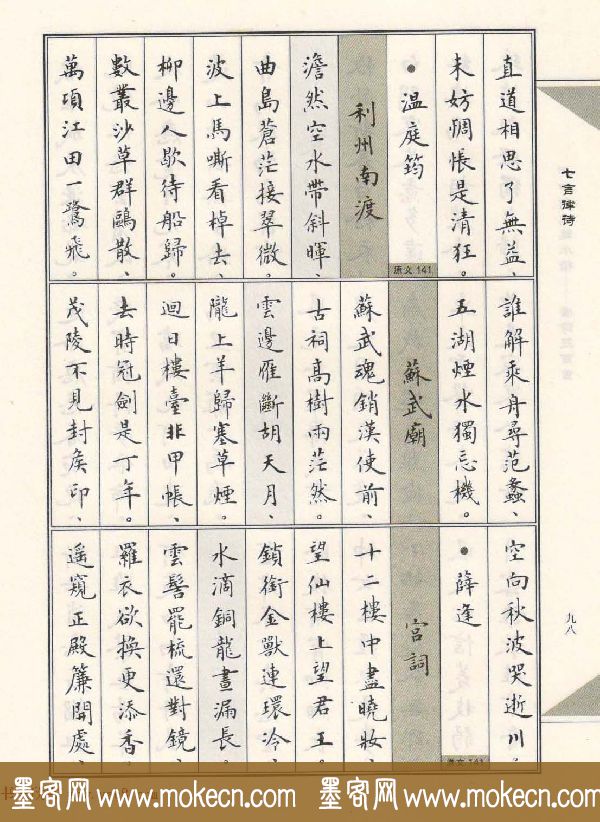 七言律诗
九八
直道相思了無益、
未妨惆悵是清狂。
●溫庭筠
利州南渡
原文141
澹然空水帶斜暉、
曲島蒼茫接翠微。
波上馬嘶看棹去、
柳邊人歇待船歸。
數叢沙草群鷗散、
萬頃江田一鷺飛。
誰解乘舟尋范蠡、
五湖煙水獨忘機。
蘇武廟
蘇武魂銷漢使前、
古祠高樹兩茫然。
雲邊雁斷胡天月、
隴上羊歸塞草煙。
迴日樓臺非甲帳、
去時冠劍是丁年。
茂陵不見封侯印、
空向秋波哭逝川。
●薛逢
宮詞
十二樓中盡曉妝、
望仙樓上望君王。
鎖銜金獸連環冷、
水滴銅龍晝漏長。
雲髻罷梳還對鏡、
羅衣欲換更添香。
遥窺正殿簾開處、
墨客网 www.mokecn.com 墨客网 www.mokecn.com